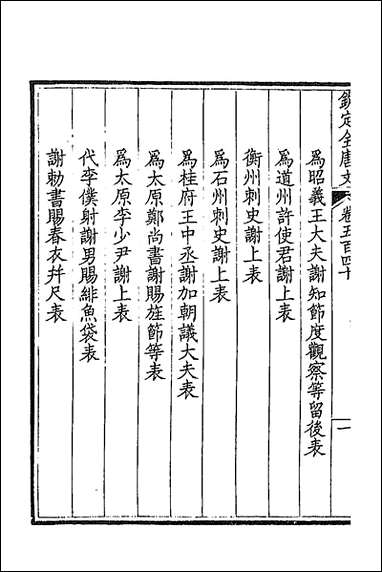 欽定全唐文 卷五百四十 一
為昭義王大夫謝知節度觀察等留後表
為道州許使君謝上表
衡州刺史謝上表
為石州刺史謝上表
為桂府王中丞謝加朝議大夫表
為太原鄭尚書謝賜旌節等表
為太原李少尹謝上表
代李僕射謝男賜緋魚袋表
謝勅書賜春衣幷尺表